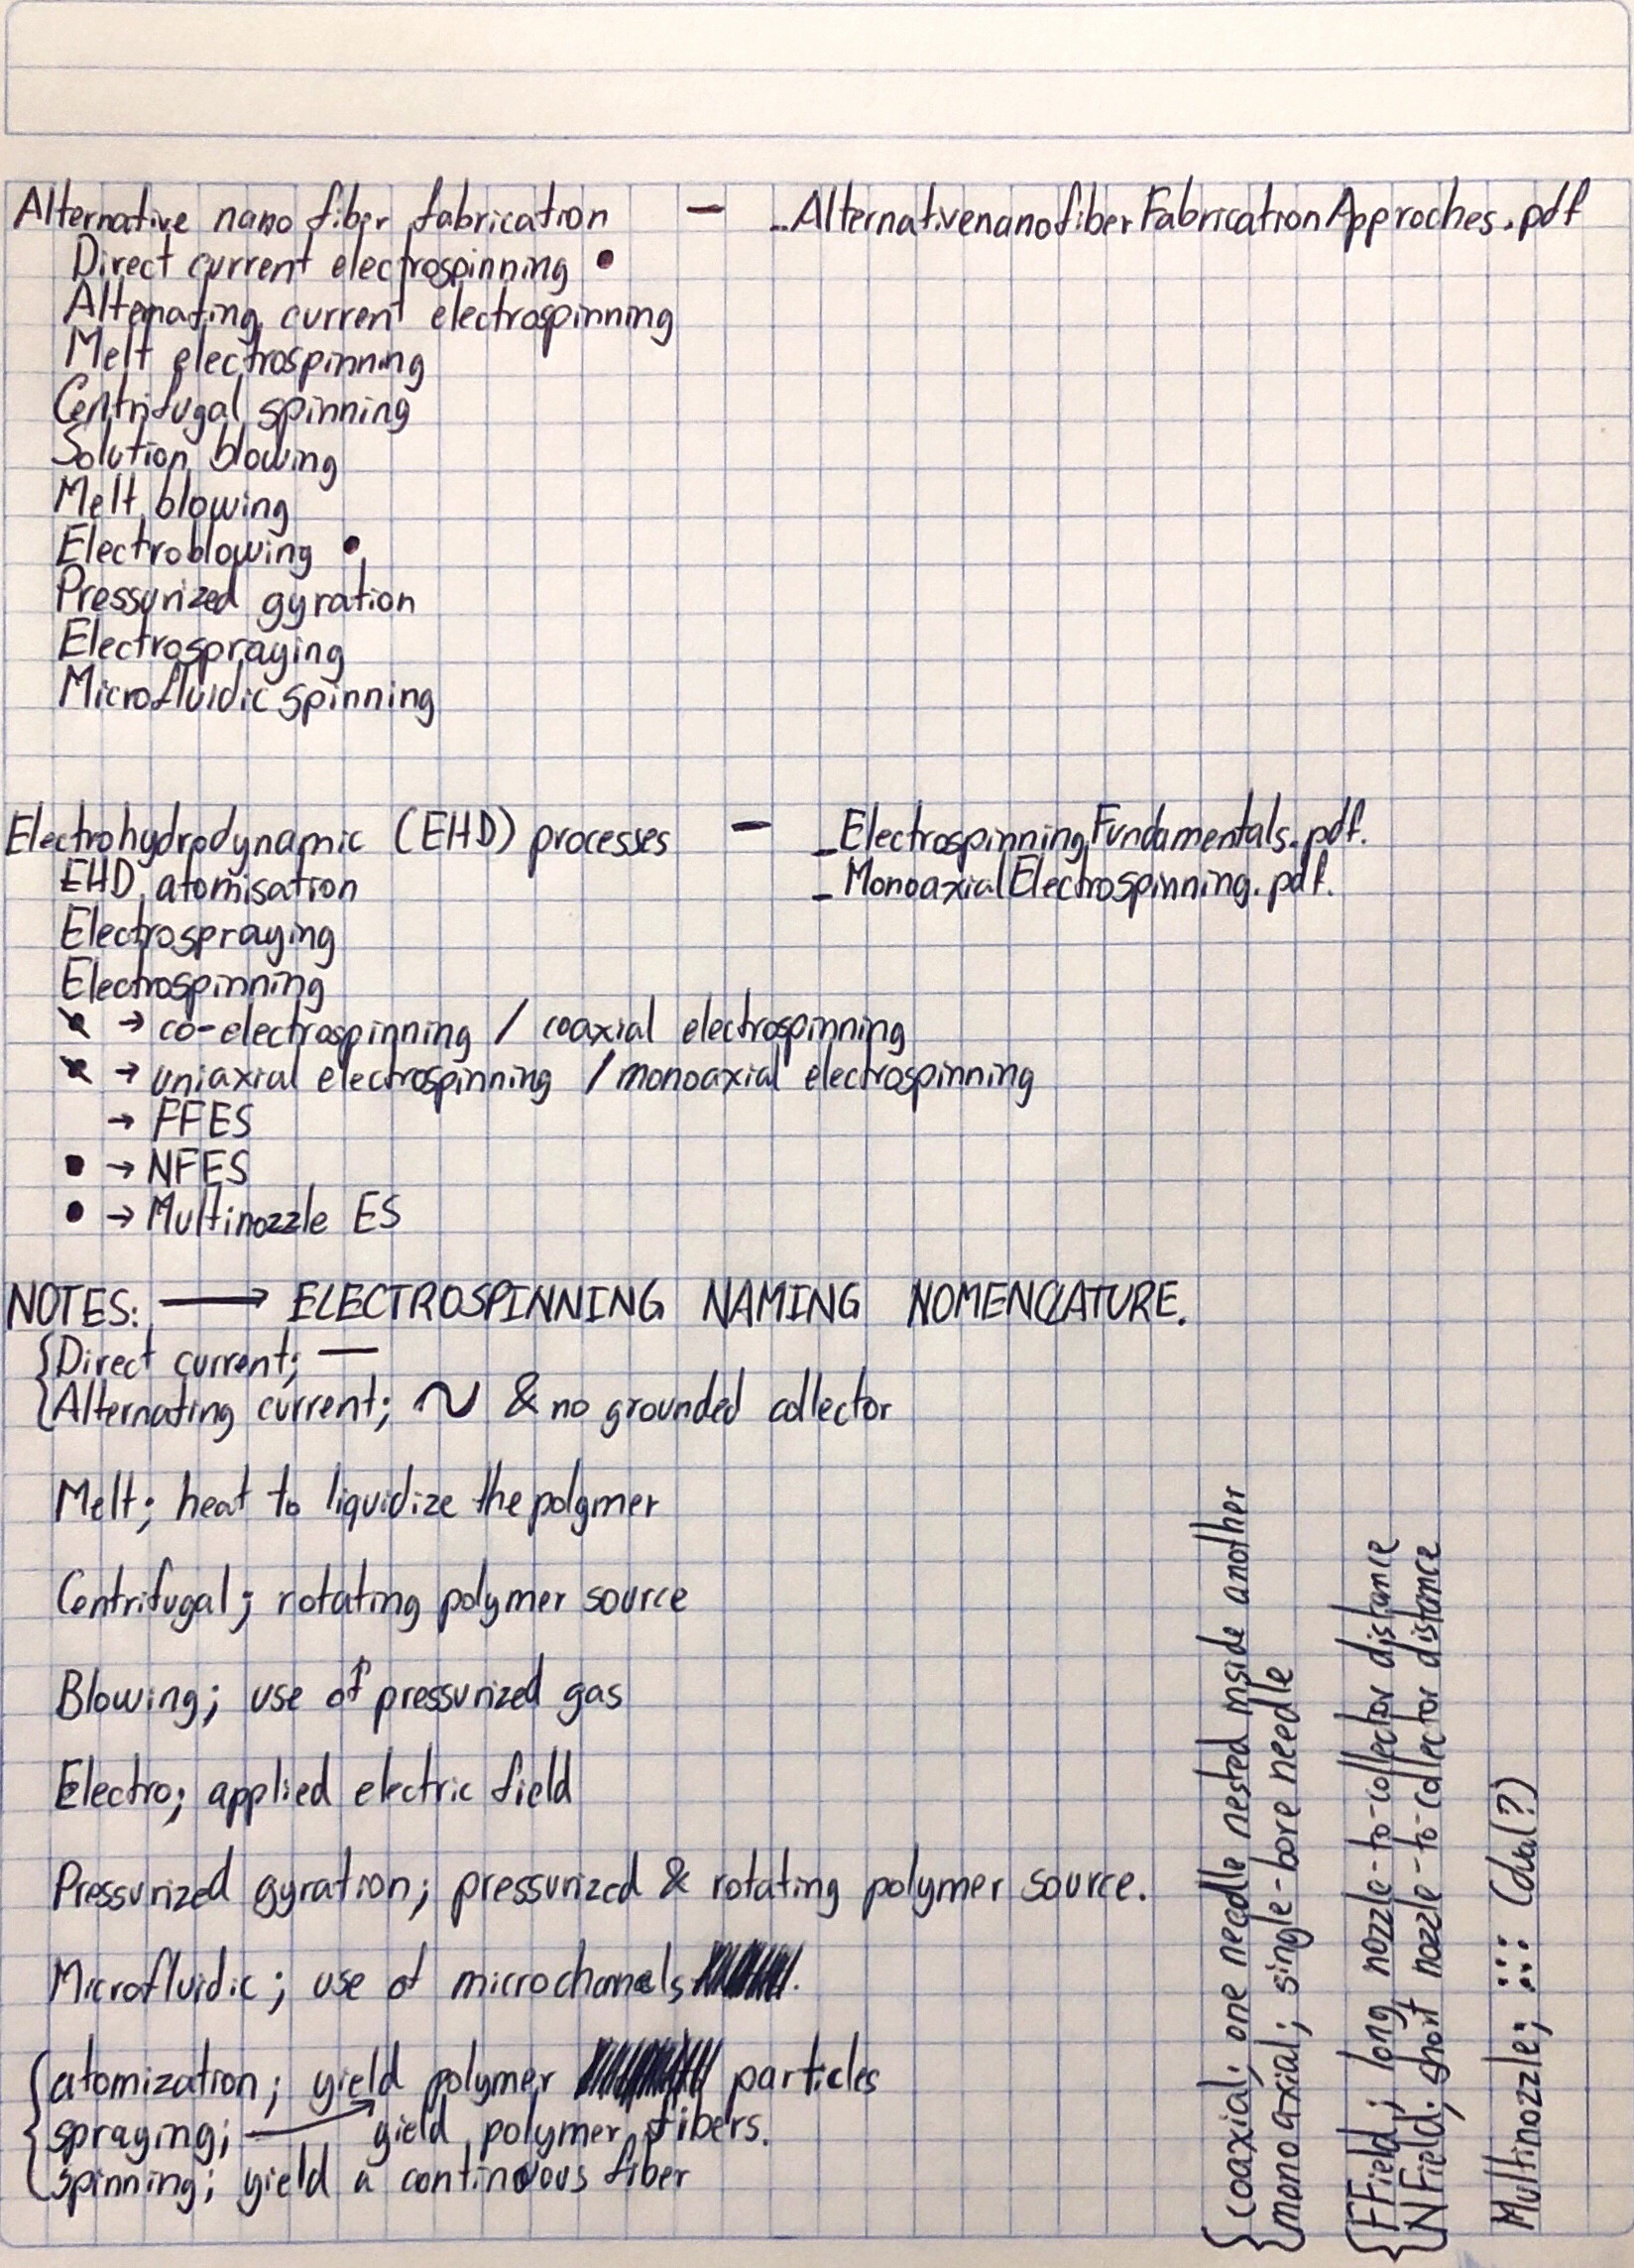 Alternative nano fiber fabrication — _AlternativenanofiberFabricationApproches.pdf
Direct current electrospinning •
Alternating current electrospinning
Melt electrospinning
Centrifugal spinning
Solution blowing
Melt blowing
Electroblowing •
Pressurized gyration
Electrospraying
Microfluidic spinning
Electrohydrodynamic (EHD) processes — _ElectrospinningFundamentals.pdf.
EHD atomisation _MonoaxialElectrospinning.pdf.
Electrospraying
Electrospinning
→ co-electrospinning / coaxial electrospinning
→ uniaxial electrospinning / monoaxial electrospinning
→ FFES
• → NFES
• → Multinozzle ES
NOTES: ⟶ ELECTROSPINNING NAMING NOMENCLATURE.
{Direct current; —
Alternating current; ~ & no grounded collector
Melt; heat to liquidize the polymer
Centrifugal; rotating polymer source
Blowing; use of pressurized gas
Electro; applied electric field
Pressurized gyration; pressurized & rotating polymer source.
Microfluidic; use of microchannels.
{atomization; yield polymer particles
spraying; → yield polymer fibers.
spinning; yield a continuous fiber
{coaxial; one needle nested inside another
monoaxial; single-bore needle
{FField; long nozzle-to-collector distance
NField; short nozzle-to-collector distance
Multinozzle; ::: (dual?)